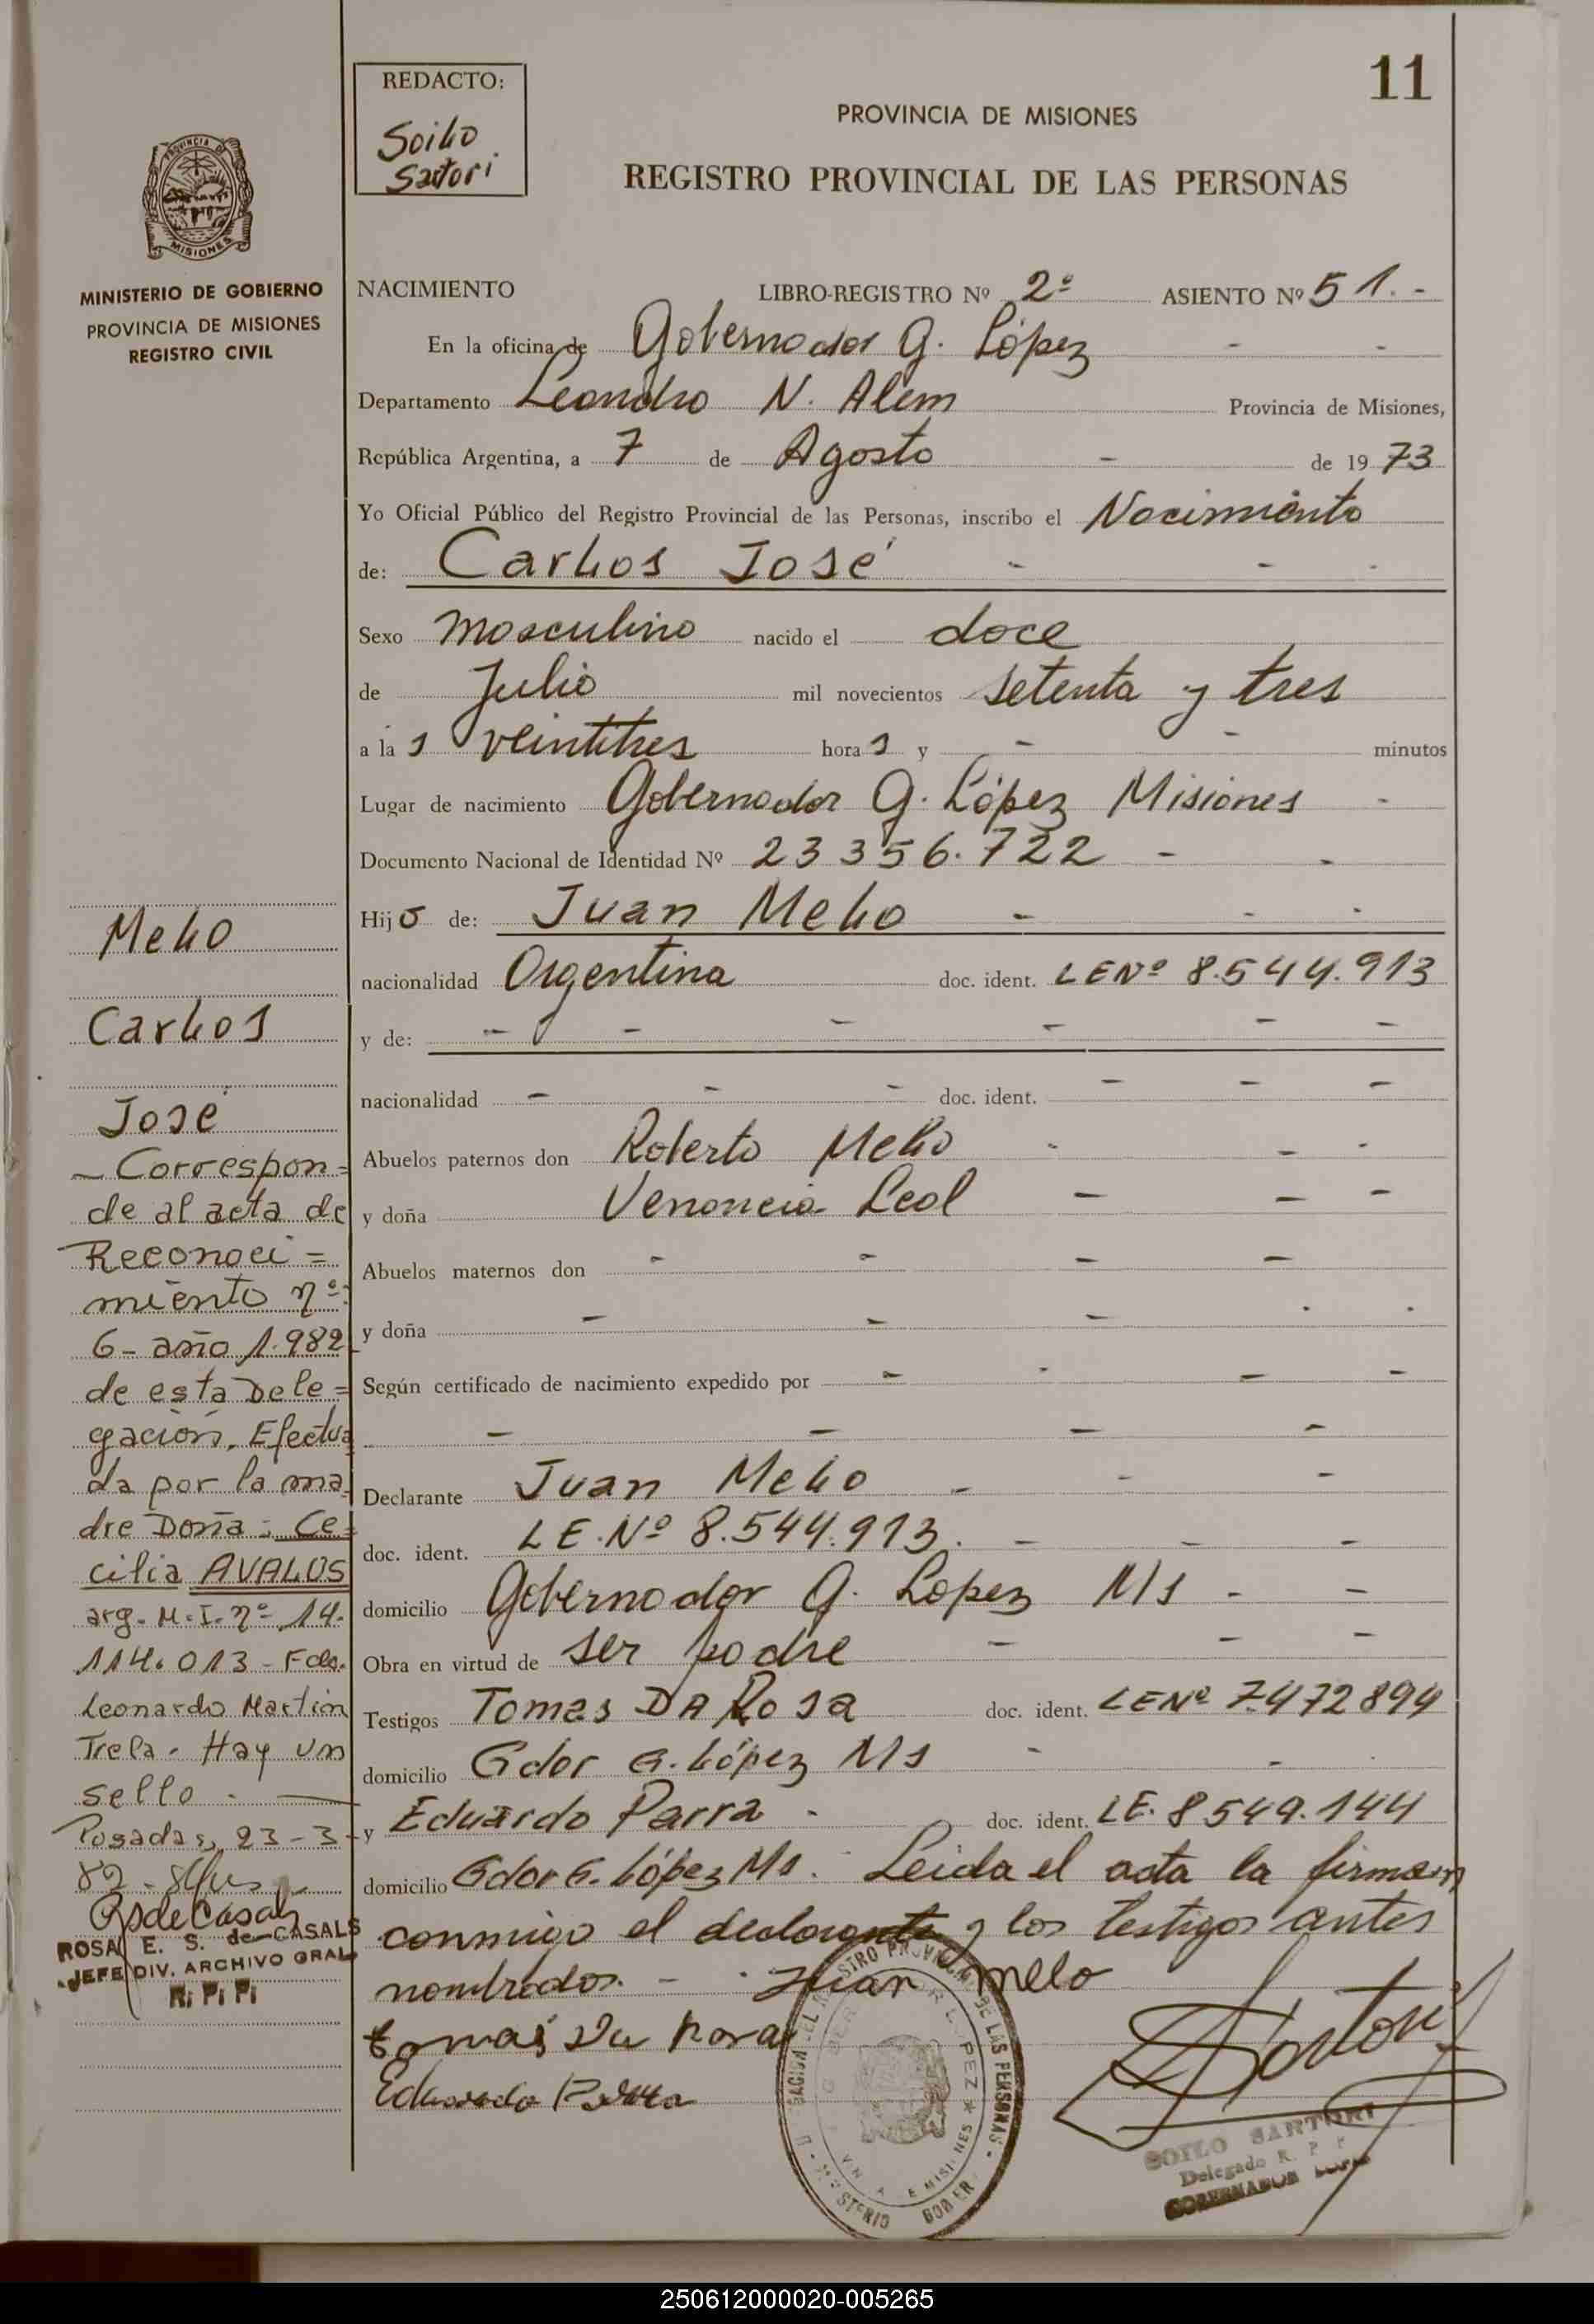 11
REDACTO:
Soilo
Sartori
PROVINCIA DE MISIONES
REGISTRO PROVINCIAL DE LAS PERSONAS
PROVINCIA DE
MISIONES
MINISTERIO DE GOBIERNO
PROVINCIA DE MISIONES
REGISTRO CIVIL
NACIMIENTO LIBRO-REGISTRO Nº 2º ASIENTO Nº 51.-
En la oficina de Gobernador G. López - -
Departamento Leandro N. Alem Provincia de Misiones,
República Argentina, a 7 de Agosto - de 1973
Yo Oficial Público del Registro Provincial de las Personas, inscribo el Nacimiento
de: Carlos José - - -
Sexo masculino nacido el doce
de Julio mil novecientos setenta y tres
a la s veintitres hora s y - - minutos
Lugar de nacimiento Gobernador G. López Misiones -
Documento Nacional de Identidad Nº 23 356.722 - -
Hijo de: Juan Melo - - -
nacionalidad Argentina doc. ident. LENº 8.544.913
y de: - - - - - -
nacionalidad - - - doc. ident. - - -
Abuelos paternos don Roberto Melo - - -
y doña Venancia Leal - - -
Abuelos maternos don - - - -
y doña - - - - -
Según certificado de nacimiento expedido por - - - -
- - - -
Declarante Juan Melo - - -
doc. ident. LE.Nº 8.544.913. - - -
domicilio Gobernador G. Lopez Ms - -
Obra en virtud de ser padre - - -
Testigos Tomas DA Rosa doc. ident. LENº 7.472894
domicilio Gdor G. López Ms - -
y Eduardo Parra - doc. ident. LE. 8549.144
domicilio Gdor G. López Ms. - Leida el acta la firman
conmigo el declarante y los testigos antes
nombrados. - - Juan melo
tomas Da Rosa
Eduardo Parra
Melo
Carlos
José
- Correspon=
de al acta de
Reconoci=
miento nº:
6- año 1.982
de esta Dele=
gación. Efectua
da por la ma
dre Doña: Ce=
cilia AVALOS
arg. M.I. nº 14.
114.013 - Fdo.
Leonardo Martin
Trela. Hay un
sello. -
Posadas, 23-3-
82.
RSdeCasals
ROSA E. S. de CASALS
JEFE DIV. ARCHIVO GRAL
R. P. P.
Sartori
SOILO SARTORI
Delegado R. P. P.
GOBERNADOR LOPEZ
250612000020-005265